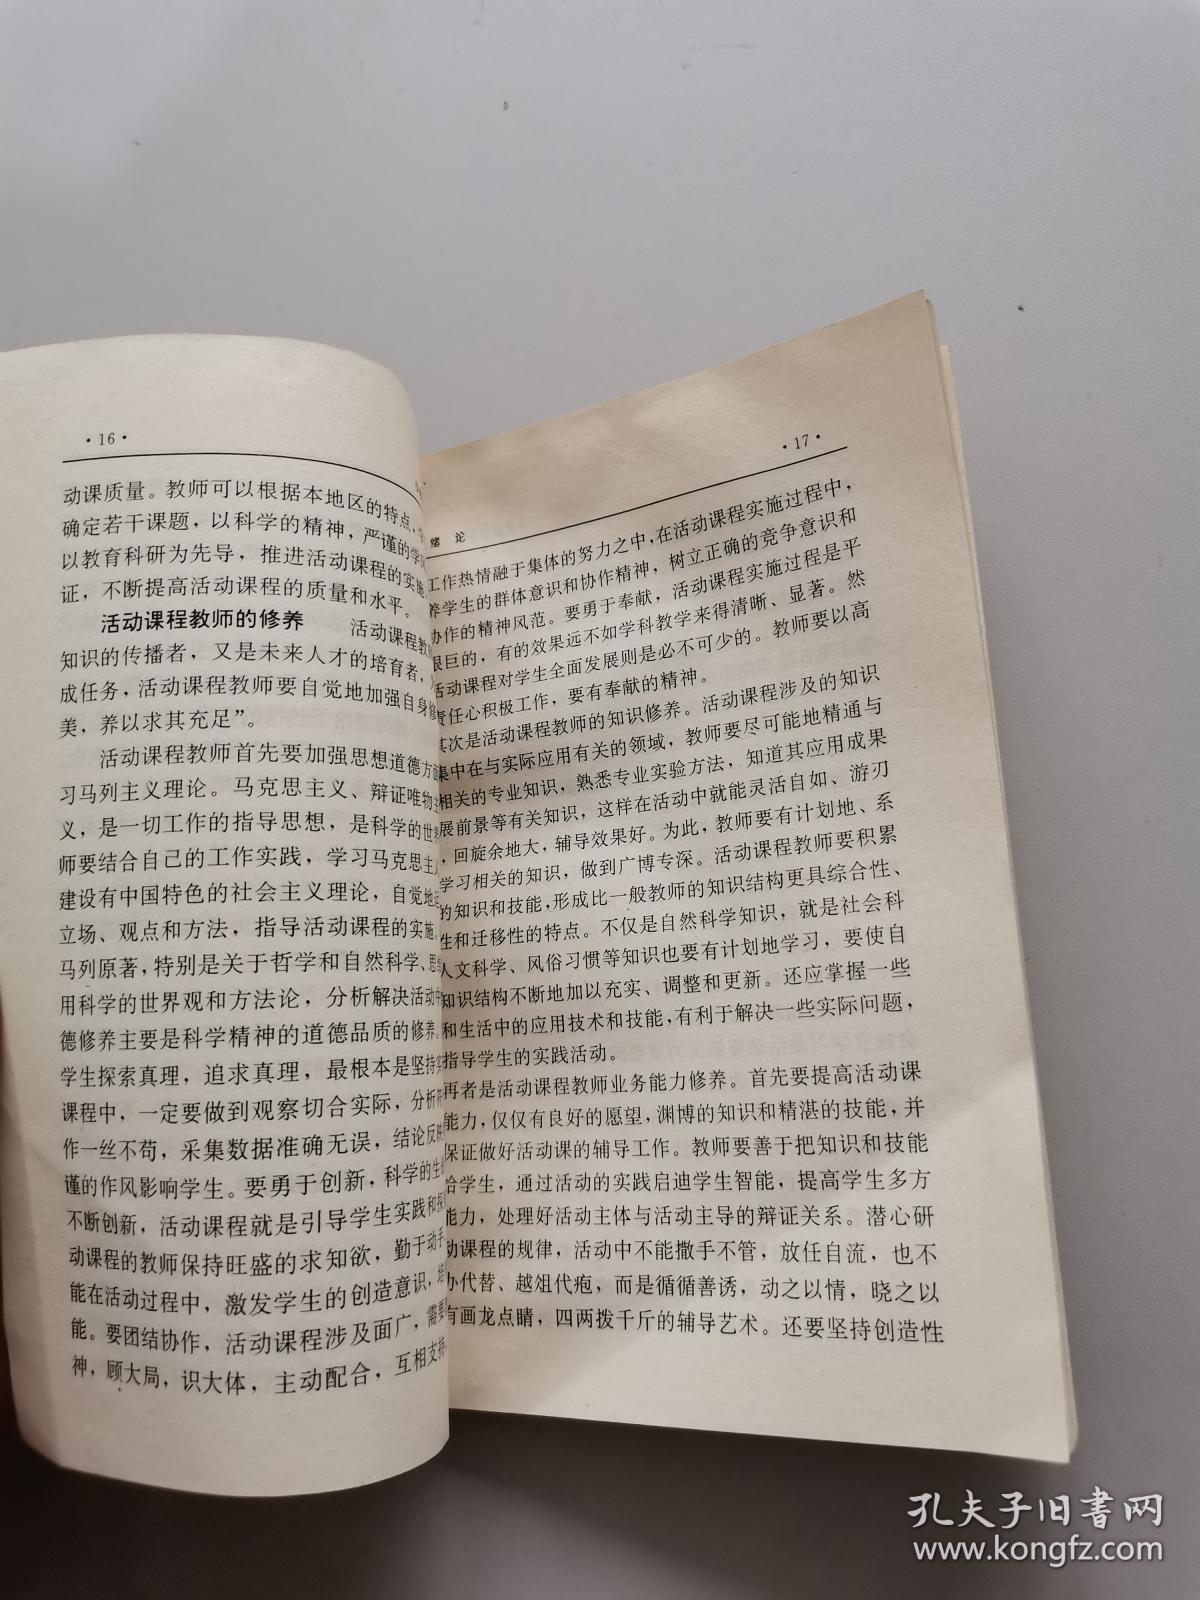 ·16·
动课质量。教师可以根据本地区的特点，
确定若干课题，以科学的精神，严谨的学
以教育科研为先导，推进活动课程的实施
证，不断提高活动课程的质量和水平。
活动课程教师的修养 活动课程教
知识的传播者，又是未来人才的培育者，
成任务，活动课程教师要自觉地加强自身修
美，养以求其充足”。
活动课程教师首先要加强思想道德方面
习马列主义理论。马克思主义、辩证唯物主
义，是一切工作的指导思想，是科学的世界
师要结合自己的工作实践，学习马克思主义
建设有中国特色的社会主义理论，自觉地运
立场、观点和方法，指导活动课程的实施。
马列原著，特别是关于哲学和自然科学、思
用科学的世界观和方法论，分析解决活动中
德修养主要是科学精神的道德品质的修养。
学生探索真理，追求真理，最根本是坚持实
课程中，一定要做到观察切合实际，分析
作一丝不苟，采集数据准确无误，结论反映
谨的作风影响学生。要勇于创新，科学的生
不断创新，活动课程就是引导学生实践和探
动课程的教师保持旺盛的求知欲，勤于动手
能在活动过程中，激发学生的创造意识，培
能。要团结协作，活动课程涉及面广，需要
神，顾大局，识大体，主动配合，互相支持
·17·
绪 论
工作热情融于集体的努力之中，在活动课程实施过程中，
养学生的群体意识和协作精神，树立正确的竞争意识和
协作的精神风范。要勇于奉献，活动课程实施过程是平
艰巨的，有的效果远不如学科教学来得清晰、显著。然
活动课程对学生全面发展则是必不可少的。教师要以高
责任心积极工作，要有奉献的精神。
其次是活动课程教师的知识修养。活动课程涉及的知识
集中在与实际应用有关的领域，教师要尽可能地精通与
相关的专业知识，熟悉专业实验方法，知道其应用成果
展前景等有关知识，这样在活动中就能灵活自如、游刃
，回旋余地大，辅导效果好。为此，教师要有计划地、系
学习相关的知识，做到广博专深。活动课程教师要积累
的知识和技能，形成比一般教师的知识结构更具综合性、
性和迁移性的特点。不仅是自然科学知识，就是社会科
人文科学、风俗习惯等知识也要有计划地学习，要使自
知识结构不断地加以充实、调整和更新。还应掌握一些
和生活中的应用技术和技能，有利于解决一些实际问题，
指导学生的实践活动。
再者是活动课程教师业务能力修养。首先要提高活动课
能力，仅仅有良好的愿望，渊博的知识和精湛的技能，并
保证做好活动课的辅导工作。教师要善于把知识和技能
给学生，通过活动的实践启迪学生智能，提高学生多方
能力，处理好活动主体与活动主导的辩证关系。潜心研
动课程的规律，活动中不能撒手不管，放任自流，也不
办代替、越俎代疱，而是循循善诱，动之以情，晓之以
有画龙点睛，四两拨千斤的辅导艺术。还要坚持创造性
孔夫子旧书网
www.kongfz.com